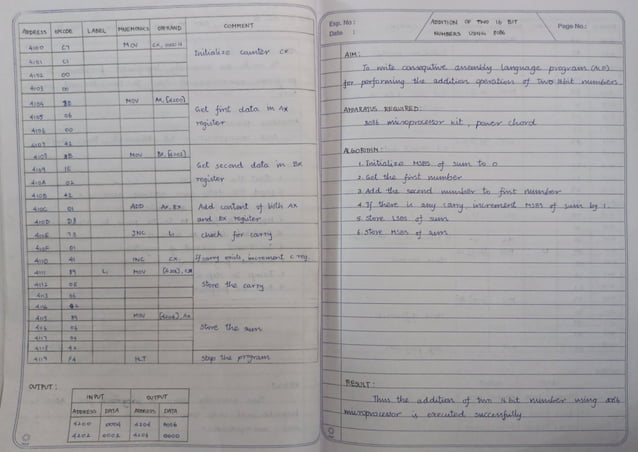 ADDRESS OPCODE LABEL MNEMONICS OPERAND COMMENT
4100 C7 MOV CX, 0000H Initialize counter CX
4101 C1
4102 00
4103 00
4104 8B MOV AX, [4200] Get first data in AX
4105 06 register
4106 00
4107 42
4108 8B MOV BX, [4202] Get second data in BX
4109 1E register
410A 02
410B 42
410C 01 ADD AX, BX Add content of both AX
410D D8 and BX register
410E 73 JNC L1 check for carry
410F 01
4110 41 INC CX If carry exists, increment C reg.
4111 89 L1 MOV [4206], CX
4112 0E store the carry
4113 06
4114 42
4115 89 MOV [4204], AX
4116 06 store the sum
4117 04
4118 42
4119 F4 HLT stop the program
OUTPUT :
INPUT OUTPUT
ADDRESS DATA ADDRESS DATA
4200 4204
4202 4206 0000
Exp. No : ADDITION OF TWO 16 BIT Page No.:
Date : NUMBERS USING 8086
AIM :
To write assembly language program (ALP)
for performing the addition operation of two 16bit numbers.
APPARATUS REQUIRED :
8086 microprocessor kit, power chord
ALGORITHM :
1. Initialize MSBS of sum to 0
2. Get the first number
3. Add the second number to first number
4. If there is any carry, increment MSBS of sum by 1.
5. store LSBS of sum
6. store MSBS of sum.
RESULT :
Thus the addition of two 16 bit number using 8086
microprocessor is executed successfully